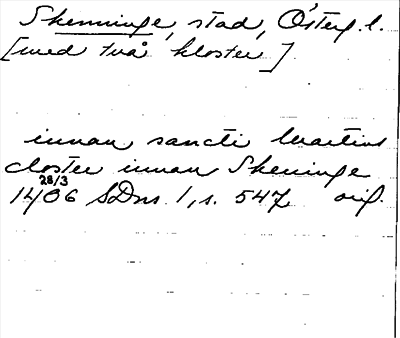 Skenninge, stad, Österg. l.
[med två kloster].
innan sancti Martins
closter innan Skeninge
28/3
1406 SDns 1, s. 547 orig.